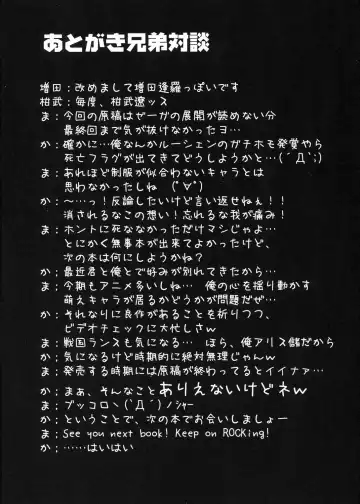 あとがき兄弟対談
増田：改めまして増田逢羅っぽいです
柑武：毎度、柑武遼ッス
ま：今回の原稿はゼーガの展開が読めない分
最終回まで気が抜けなかったヨ…
か：確かに…俺なんかルーシェンのガチホモ発覚やら
死亡フラグが出てきてどうしようかと…(´Д`;)
ま：あれほど制服が似合わないキャラとは
思わなかったしね (ﾟ∀ﾟ)
か：く～んかっ！反論したいけど言い返せねぇ！！
消されるなこの想い！忘れるな我が痛み！
ま：ホントに死ななかっただけマシじゃよ…
とにかく無事本が出来てよかったけど、
次の本は何にしようかね？
か：最近君と俺とで好みが別れてきたから…
ま：今期もアニメ多いしね… 俺の心を揺り動かす
萌えキャラが居るかどうかが問題だぜ…
か：それなりに良作があることを祈りつつ、
ビデオチェックに大忙しさｗ
ま：戦国ランスも気になる… ほら、俺アリス儲だから
か：気になるけど時期的に絶対無理じゃんｗ
ま：発売する時期には原稿が終わってるとイイナァ…
か：まぁ、そんなことありえないけどネｗ
ま：ブッコロヽ(`Д´)ノｼｬｰ
か：ということで、次の本でお会いしましょー
ま：See you next book! Keep on ROCKing!
か：……はいはい